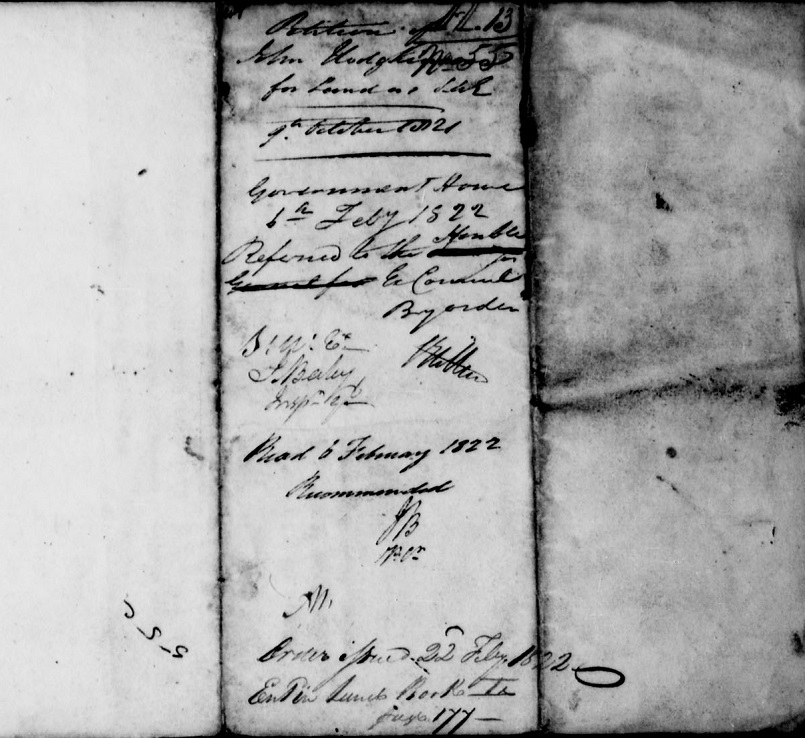 Petition of H. 13
John Hodgkin No 55
for Land as S.U.E
9th October 1821
Government House
6th Feby 1822
Referred to the Honble
Ex Council
By order
Read 6 February 1822
Recommended
JB
M.
Order issued 22d Feby 1822
Ent'd in Land Book
page 177
555